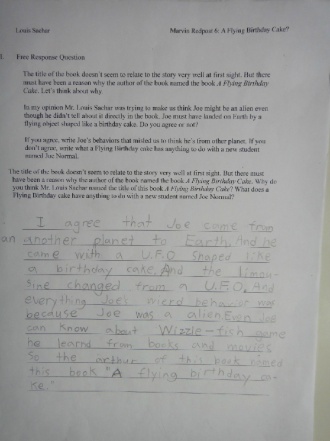 Louis Sachar Marvin Redpost 6: A Flying Birthday Cake?
Free Response Question
The title of the book doesn't seem to relate to the story very well at first sight. But there
must have been a reason why the author of the book named the book A Flying Birthday
Cake. Let's think about why.
In my opinion Mr. Louis Sachar was trying to make us think Joe might be an alien even
though he didn't tell about it directly in the book. Joe must have landed on Earth by a
flying object shaped like a birthday cake. Do you agree or not?
If you agree, write Joe's behaviors that misled us to think he is from other planet. If you
don't agree, write what a Flying birthday cake has anything to do with a new student
named Joe Normal.
The title of the book doesn't seem to relate to the story very well at first sight. But there must have
been a reason why the author of the book named the book A Flying Birthday Cake. Why do
you think Mr. Louis Sachar named the title of this book A Flying Birthday Cake? What does a
Flying Birthday cake have anything to do with a new student named Joe Normal?
I agree that Joe came from
an another planet to Earth. And he
came with a U.F.O shaped like
a birthday cake. And the limou-
sine changed from a U.F.O. And
everything Joe's wierd behavior was
because Joe was a alien. Even Joe
can know about Wizzle-fish game
he learned from books and movies
So the arthur of this book named
this book "A flying birthday ca-
ke."